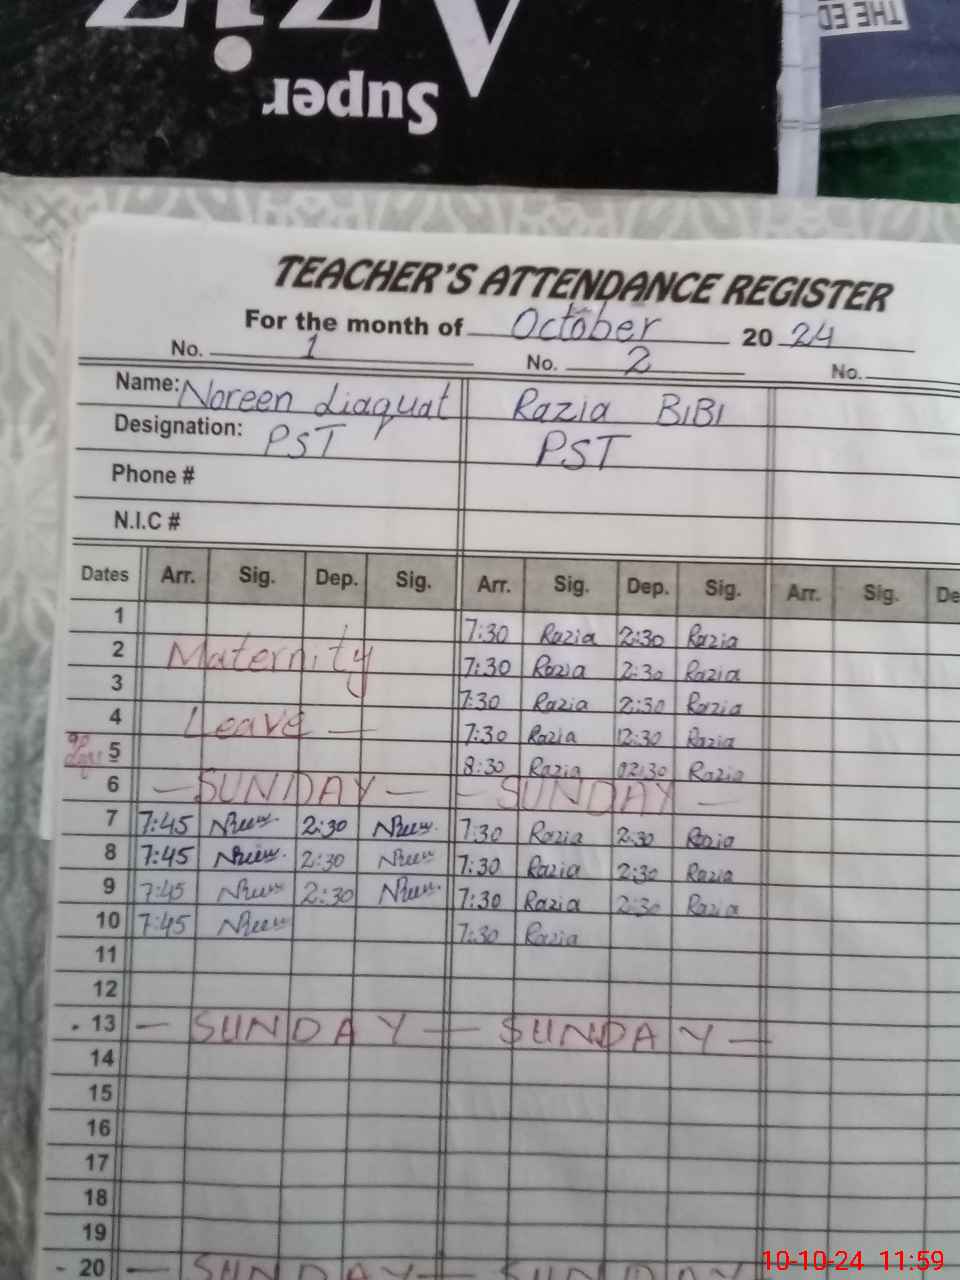 AZIZ
Super
THE ED
TEACHER'S ATTENDANCE REGISTER
For the month of October 20 24
No. 1 No. 2 No.
Name: Noreen Liaquat Razia BiBi
Designation: PST PST
Phone #
N.I.C #
Dates Arr. Sig. Dep. Sig. Arr. Sig. Dep. Sig. Arr. Sig. De
1 7:30 Razia 2:30 Razia
2 Maternity 7:30 Razia 2:30 Razia
3 7:30 Razia 2:30 Razia
4 Leave — 7:30 Razia 2:30 Razia
5 8:30 Razia 02:30 Razia
6 — SUNDAY — — SUNDAY —
7 7:45 2:30 7:30 Razia 2:30 Razia
8 7:45 2:30 7:30 Razia 2:30 Razia
9 7:45 2:30 7:30 Razia 2:30 Razia
10 7:45 7:30 Razia
11
12
13 — SUNDAY — SUNDAY —
14
15
16
17
18
19
20 — SUNDAY — SUNDAY
10-10-24 11:59